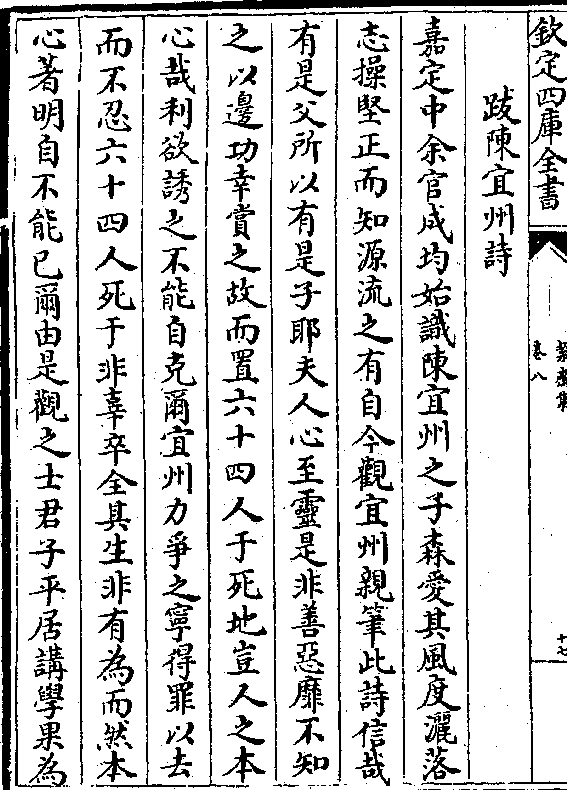 欽定四庫全書
卷八
十七
跋陳宜州詩
嘉定中余官成均始識陳宜州之子森愛其風度灑落
志操堅正而知源流之有自今觀宜州親筆此詩信哉
有是父所以有是子耶夫人心至靈是非善惡靡不知
之以邊功幸賞之故而置六十四人于死地豈人之本
心哉利欲誘之不能自克爾宜州力爭之寧得罪以去
而不忍六十四人死于非辜卒全其生非有為而然本
心著明自不能已爾由是觀之士君子平居講學果為